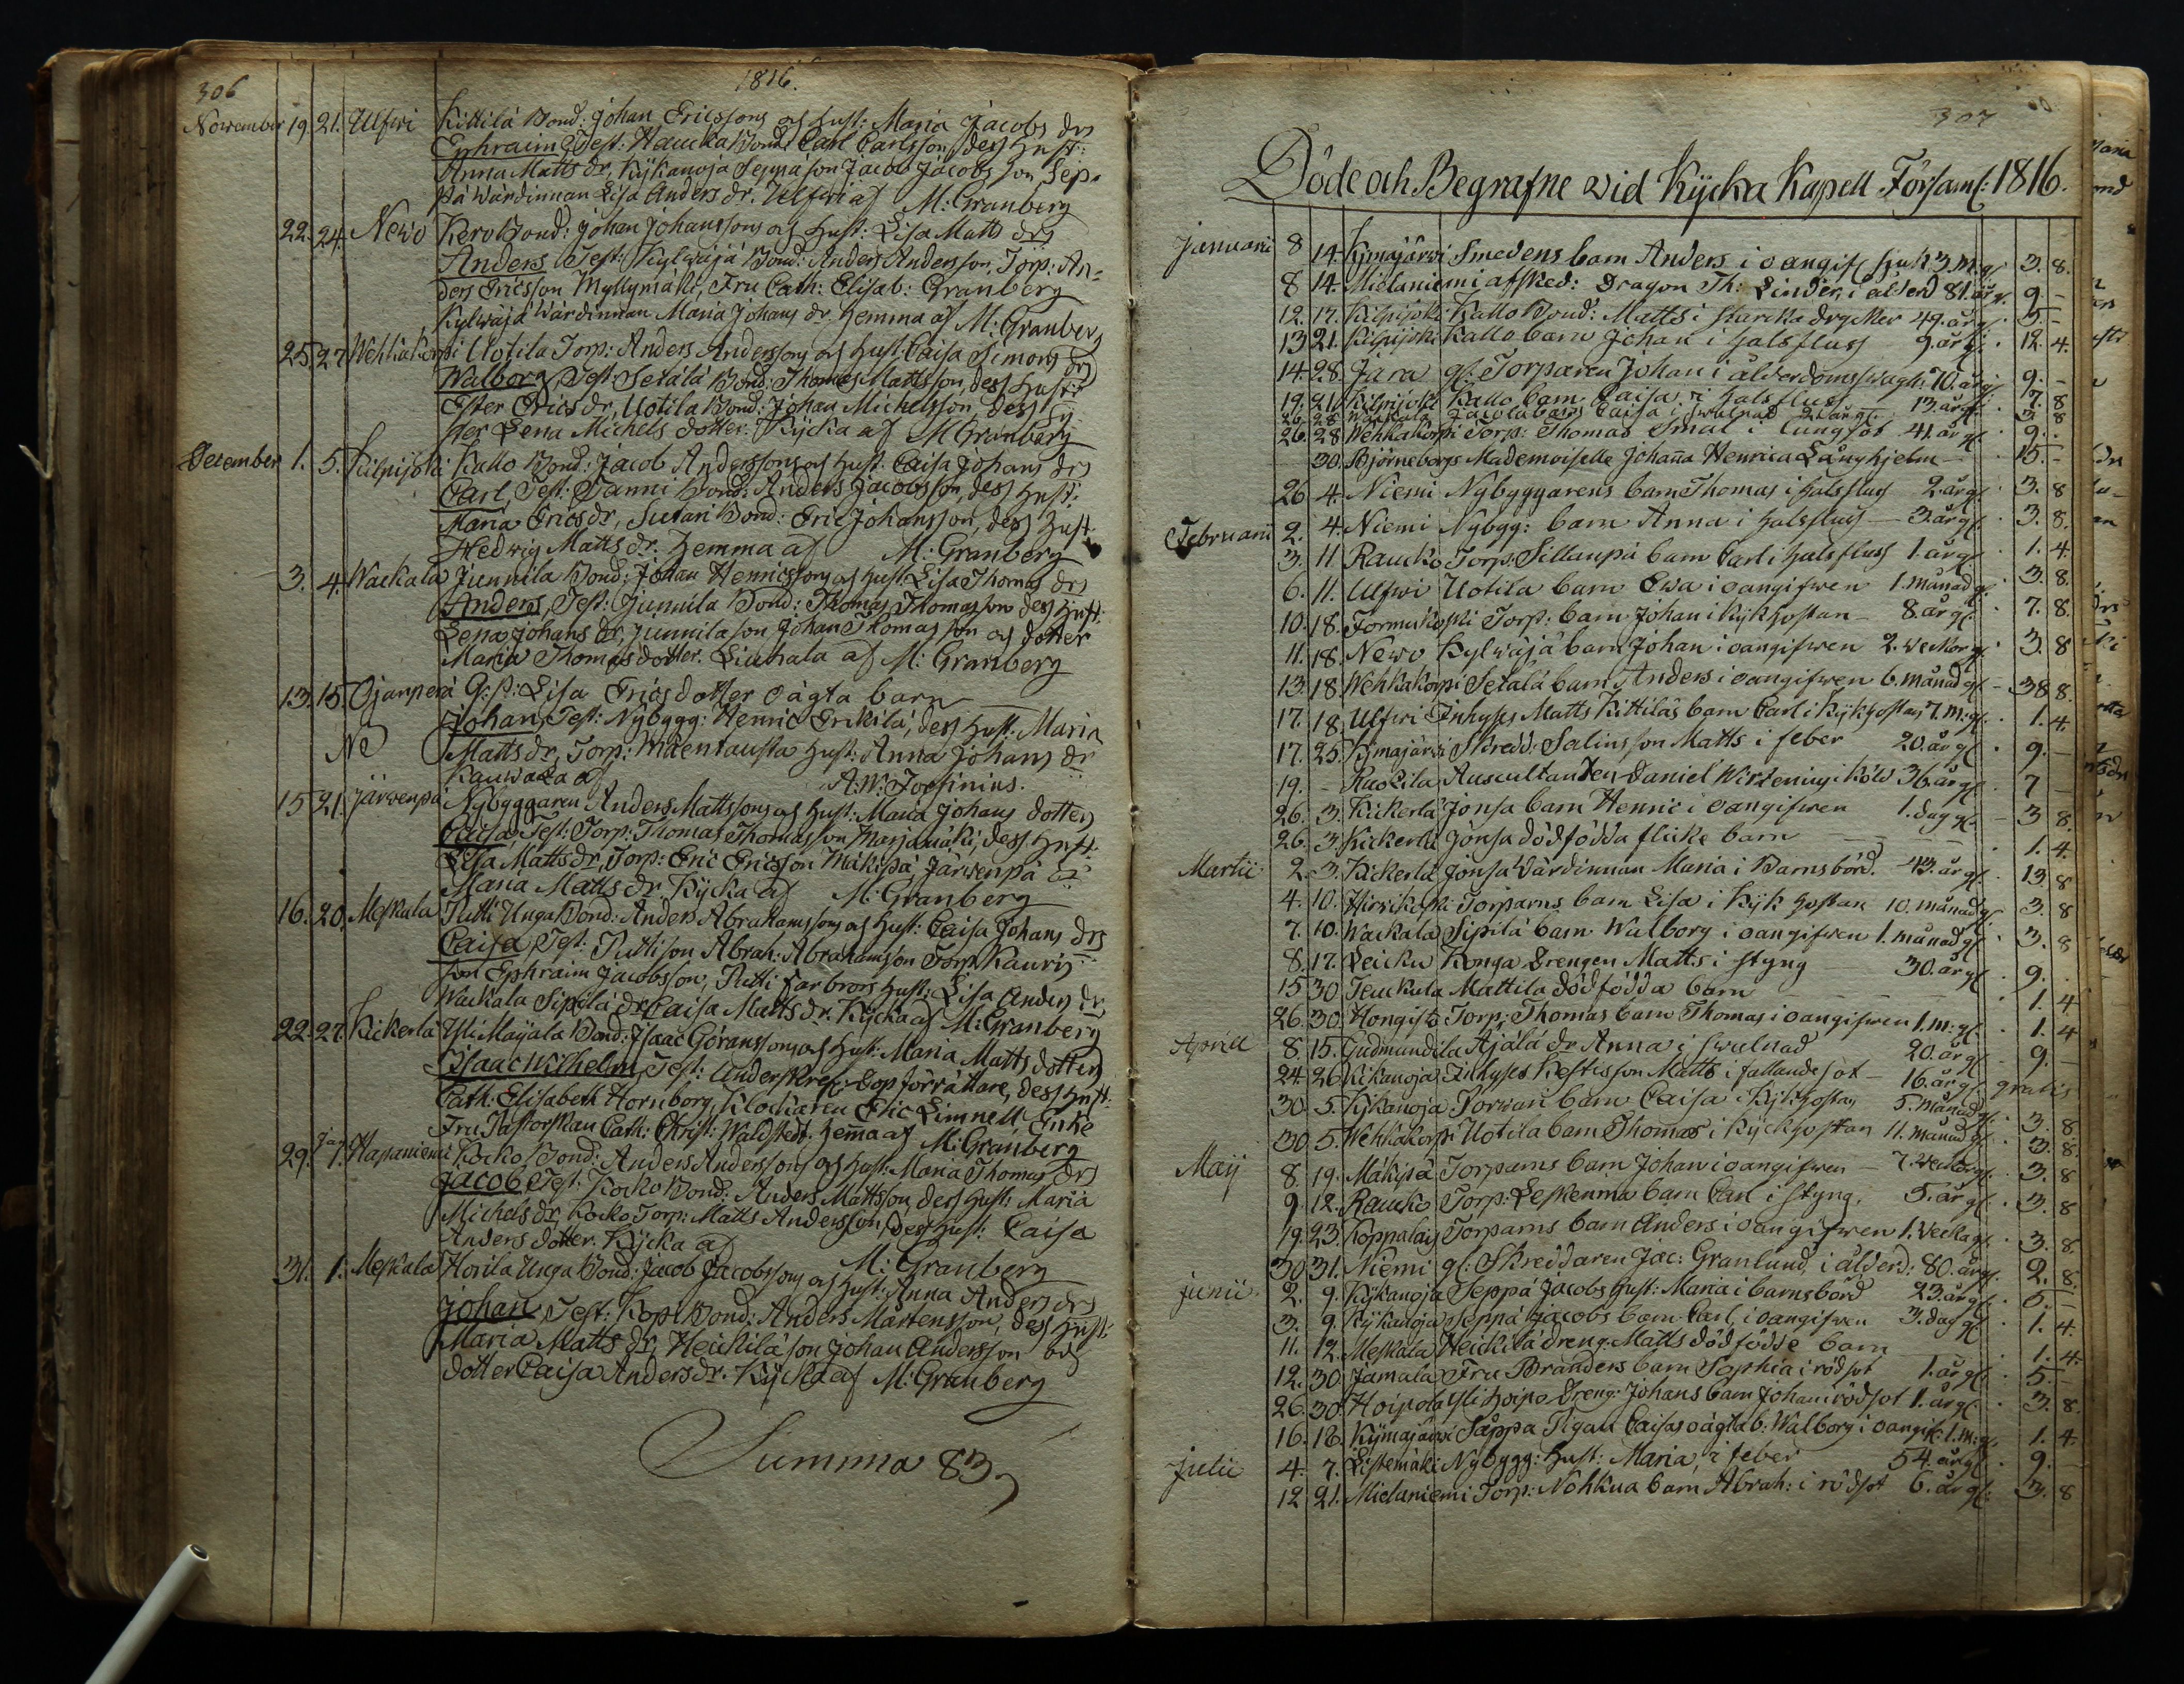 306
1816.
November 19. 21. Ulfwi Kittilä Bond: Johan Ericssons och Hust: Maria Jacobs drs
Ephraim, Test: Haucka Bond: Carl Carlsson, dess Hust:
Anna Matts dr, Kykänoja Seppä son Jacob Jacobsson, Sep-
pä Wärdinnan Lisa Anders dr. Ulfwi af M: Granberg
22. 24. Newo Kero Bond: Johan Johanssons och Hust: Lisa Matts drs
Anders Test: Kylwäjä Bond: Anders Andersson, Torp: An-
ders Ericsson Myllymäki, Fru Cath: Elisab: Granberg
Kylwäjä Wärdinnan Maria Johans dr. Hemma af M: Granberg
25. 27. Wehkakorpi Uotila Torp: Anders Anderssons och Hust: Caisa Simons drs
Walborg, Test: Setälä Bond: Thomas Mattsson, dess Hust:
Ester Erics dr, Uotila Bond: Johan Michelsson, dess Sy-
ster Lena Michels dotter. Kycka af M Granberg
December 1. 5. Kilpijoki Kallo Bond: Jacob Anderssons och Hust: Caisa Johans drs
Carl, Test: Tanni Bond: Anders Jacobsson, dess Hust:
Maria Erics dr, Sutari Bond: Eric Johansson, dess Hust
Hedwig Matts dr. Hemma af M: Granberg
3. 4. Wackala Junnila Bond: Johan Henricssons och Hust: Lisa Thomas drs
Anders, Test: Junnila Bond: Thomas Thomasson dess Hust:
Lena Johans dr, Junnila son Johan Thomasson och dotter
Maria Thomas dotter. Liuhala af M: Granberg
13. 15. Ojanperä Q: P: Lisa Erics dotter oägta barn
Johan, Test: Nybygg: Henric Erkilä, dess Hust: Maria
Matts dr, Torp: Widentausta Hust: Anna Johans dr
NB Kauwatza af A: W: Forsinius.
15 21. Järwenpä Nybyggaren Anders Mattssons och Hust: Maria Johans dotters
Caisa, Test: Torp: Thomas Thomasson Marjamäki, dess Hust:
Lisa Matts dr, Torp: Eric Ericsson Mäkipä, Järwenpä
Maria Matts dr. Kycka af M: Granberg
16. 20. Meskala Putti Unga Bond: Anders Abrahamssons och Hust: Caisa Johans drs
Caisa, Test: Putti son Abrah: Abrahamson Torp: Kauris
son Ephraim Jacobsson, Putti farbrors Hust: Lisa Anders dr,
Wackala Sipilä dr Caisa Matts dr. Kycka af M: Granberg
22. 27. Kickerlä Yli Mayala Bond: Isaac Göranssons och Hust: Maria Matts dotters
Isaac Wilhelm, Test: Underskref: Dop förrättare, dess Hust:
Cath: Elisabeth Hornborg, Klockaren Eric Limnell, Enke
Fru Pastorskan Cath: Christ: Waldstedt. Hemma af M: Granberg
29. Jan: 1. Hapaniemi Kocko Bond: Anders Anderssons och Hust: Maria Thomas drs
Jacob, Test: Kocko Bond: Anders Mattsson, dess Hust: Maria
Michels dr, Kocko Torp: Matts Andersson, dess Hust: Caisa
Anders dotter. Kycka af M: Granberg
31. 1. Meskala Horila Unga Bond: Jacob Jacobssons och Hust: Anna Anders drs
Johan, Test: Kopi Bond: Anders Mårtensson, dess Hust:
Maria Matts dr, Heickilä son Johan Andersson och
dotter Caisa Anders dr. Kycka af M: Granberg
Summa 83
307
Döde och Begrafne wid Kycka Kapell Församl: 1816.
Januarii 8 14. Kymäjärwi Smedens barn Anders i oangif: sjuk 3. M: gl 3. 8.
8 14. Mielaniemi afsked: Dragon Th: Linder, i ålderd 81. år gl. 9. -
12. 17. Kilpijoki Kallo Bond: Matts i starcka drycker 49. år gl. 5. -
13 21. Kilpijoki Kallo barn Johan i halsfluss 9. år gl. 12. 4.
14. 28. Jära gl: Torparen Johan i ålderdomsswagh: 70. år gl. 9. -
19. 21. Kilpijoki Kallo barn Caisa i halsfluss 13. år gl. 7. 8
26. 28 Wackala Jacola barn Caisa i swulnad 2. år gl. 3. 8
26. 28 Wehkakorpi Torp: Thomas Smal i lungsot 41. år gl. 9.
30. Björneborgs Mademoiselle Johanna Henrica Långhjelm 15. -
26 4. Niemi Nybyggarens barn Thomas i halsfluss 2. år gl. 3. 8
Februarii 2. 4. Niemi Nybygg: barn Anna i halsfluss 3. år gl. 3. 8.
3. 11. Raucko Torp: Sillanpä barn Carl i halsfluss 1. år gl. 1. 4.
6. 11. Ulfwi Uotila barn Ewa i oangifwen 1. månad gl. 3. 8.
10. 18. Tormikoski Torp: barn Johan i Kykhostan 8. år gl. 7. 8.
11. 18. Newo Kylwäjä barn Johan i oangifwen 2. weckor gl. 3. 8
13. 18. Wehkakorpi Setälä barn Anders i oangifwen 6. månad gl. 3. 8.
17. 18. Ulfwi Inhyses Matts Kittiläs barn Carl i Kykhostan 7. M: gl. 1. 4.
17. 25. Kymäjärwi Skredd: Salins son Matts i feber 20. år gl. 9. -
19. - Raozila Auscultanten Daniel Wirzenius i Köld 36. år gl. 7 -
26. 3. Kickerlä Jonsa barn Henric i oangifwen 1. dag gl. 3 8.
26. 3. Kickerlä Jonsa dödfödda flicke barn 1. 4.
Martii 2. 3. Kickerlä Jonsa Wärdinnan Maria i Barnsbörd. 43. år gl. 13. 8
4. 10. Hirwikoski Torparns barn Lisa i Kyk hostan 10. månad gl. 3. 8
7. 10. Wackala Sipilä barn Walborg i oangifwen 1. månad gl. 3. 8
8. 17. Leicku Konga Drengen Matts i styng 30. år gl. 9.
15 30 Teuckula Mattila dödfödda barn 1. 4
26. 30. Hongisto Torp: Thomas barn Thomas i oangifwen 1. m: gl. 1. 4
April 8. 15. Gudmundila Äjälä dr Anna i swulnad 20. år gl 9. -
24. 26. Kikanoja Inhyses Kestis son Matts i fallandesot 16. år gl. gratis
30. 5. Kykänoja Torwari barn Caisa i Kykhosta 5. månad gl. 3. 8
30. 5. Wehkakorpi Uotila barn Thomas i Kyckhostan 11. månad gl. 3. 8.
Maij 8. 19. Mäkipä Torparns barn Johan i oangifwen 7. weckor gl. 3. 8
9. 12. Raucko Torp: Leskenina barn Carl i styng, 5. år gl. 3. 8
19. 23. Koppalais Torparns barn Anders i oangifwen 1. wecka gl. 3. 8.
30. 31. Niemi gl: Skreddaren Jac: Granlund, i ålderd: 80. år gl. 2. 8.
Junii 2. 9. Kykänoja Seppä Jacobs Hust: Maria i barnsbörd 23. år gl. 5. -
3. 9. Kykänoja Seppä Jacobs barn Carl, i oangifwen 3. dag gl. 1. 4.
11. 12. Meskala Heickilä dreng: Matts dödfödde barn 1. 4.
12. 30. Jämala Fru Branders barn Sophia i rödsot 1. år gl. 5. -
26. 30. Hoipola Yli Hoipo Dreng: Johans barn Johan i rödsot 1. år gl. 3. 8.
16. 18. Kymäjärwi Säppä Pigan Caisas oägta b: Walborg i oangif: 1. m: gl. 1. 4.
Julii 4. 7. Listemäki Nybygg: Hust: Maria, i feber 54. år gl. 9. -
12 21. Mielaniemi Torp: Nohkua barn Abrah: i rödsot 6. år gl. 3. 8